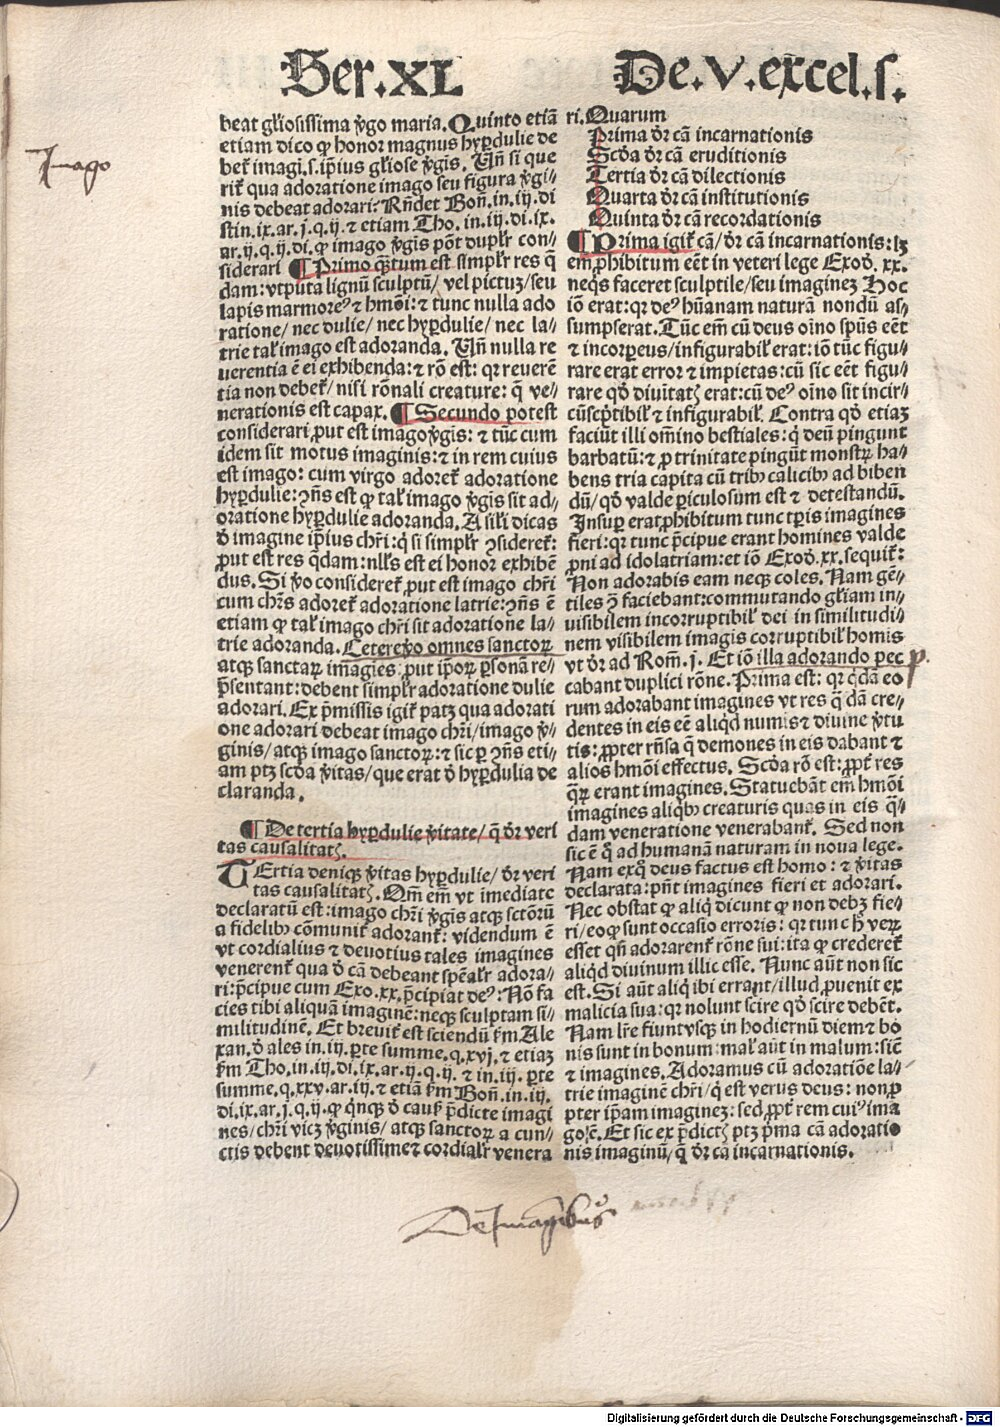 Ser.XL
De.V.excel.s.
Imago
beat gl̓iosissima v̓go maria. Quinto etiā
etiam dico ꝙ honor magnus hyꝑdulie de
bet̓ imagi.s.ip̄ius gl̓iose v̓gīs. Uñ si que
rit̓ qua adoratione imago seu figura v̓gi-
nis debeat adorari: Rñdet Boñ.in.iij.di
stin.ix.ar.j.q.ij.⁊ etiam Tho.in.iij.di.ix.
ar.ij.q.ij.di.ꝙ imago v̓gīs pōt duplr̓ con-
siderari ¶ Primo q̄ꝫtum est simplr̓ res q̄
dam: vtputa lignū sculptū/ vel pictuꝫ/ seu
lapis marmoreꝰ ⁊ hmōi: ⁊ tunc nulla ado
ratione/ nec dulie/ nec hyꝑdulie/ nec la-
trie tal̓ imago est adoranda. Uñ nulla re
uerentia ē ei exhibenda: ⁊ rō est: qꝛ reuerē
tia non debet̓/ nisi rōnali creature: q̄ ve-
nerationis est capax. ¶ Secundo potest
considerari ꝓut est imago v̓gīs: ⁊ tūc cum
idem sit motus imaginis: ⁊ in rem cuius
est imago: cum virgo adoret̓ adoratione
hyꝑdulie: ꝯñs est ꝙ tal̓ imago v̓gīs sit ad-
oratione hyꝑdulie adoranda. A sil̓i dicas
d̓ imagine ip̄ius chr̓i: q̓ si simplr̓ ꝯsideret̓:
ꝓut est res q̄dam: nll̓s est ei honor exhibē
dus. Si v̓o consideret̓ ꝓut est imago chr̓i
cum chr̓s adoret̓ adoratione latrie: ꝯñs ē
etiam ꝙ tal̓ imago chr̓i sit adoratione la-
trie adoranda. Cetere v̓o omnes sanctoꝝ
atqꝫ sanctaꝝ im̄agies/ ꝓut ip̄oꝝ ꝑsonā re-
p̄sentant: debent simplr̓ adoratione dulie
adorari. Ex p̄missis igit̓ patꝫ qua adorati
one adorari debeat imago chr̓i/ imago v̓-
ginis/ atqꝫ imago sanctoꝝ: ⁊ sic ꝑ ꝯñs eti-
am ptꝫ scd̓a v̓itas/ que erat d̓ hyꝑdulia de
claranda.
¶ De tertia hyꝑdulie v̓itate/ q̄ dr̓ veri
tas causalitatꝭ.
TErtia deniqꝫ v̓itas hyꝑdulie/ dr̓ veri
tas causalitatꝭ. Qm̄ em̄ vt imediate
declaratū est: imago chr̓i v̓gīs atqꝫ sctōrū
a fidelibꝰ cōmunit̓ adorant̓: videndum ē
vt cordialius ⁊ deuotius tales imagines
venerent̓ qua d̓ cā debeant spēalr̓ adora-
ri: p̄cipue cum Exo.xx.p̄cipiat deꝰ: Nō fa
cies tibi aliquā imaginē: neqꝫ sculptam si-
militudinē. Et breuit̓ est sciendū ẜm Ale
xan.d̓ ales in.iij.ꝑte summe.q.xvj.⁊ etiaꝫ
ẜm Tho.in.iij.di.ix.ar.ij.q.ij.⁊ in.iij.ꝑte
summe.q.xxv.ar.iij.⁊ etiā ẜm Boñ.in.iij.
di.ix.ar.j.q.ij.ꝙ q̓nqꝫ d̓ causꝭ p̄dicte imagi
nes/ chr̓i vicꝫ v̓ginis/ atqꝫ sanctoꝝ a cun-
ctis debent deuotissime ⁊ cordialr̓ venera
ri. Quarum
Prima dr̓ cā incarnationis
Scd̓a dr̓ cā eruditionis
Tertia dr̓ cā dilectionis
Quarta dr̓ cā institutionis
Quinta dr̓ cā recordationis
¶ Prima igit̓ cā/ dr̓ cā incarnationis: lꝫ
em̄ ꝓhibitum eēt in veteri lege Exod̓.xx.
neqꝫ faceret sculptile/ seu imagineꝫ Hoc
iō erat: qꝛ deꝰ hūanam naturā nondū as-
sumpserat. Tūc em̄ cū deus oīno sp̄us eēt
⁊ incorꝑeus/ infigurabil̓ erat: iō tūc figu-
rare erat error ⁊ impietas: cū sic eēt figu-
rare qd̓ diuītatꝭ erat: cū deꝰ oīno sit incir-
cūscp̄tibil̓ ⁊ infigurabil̓. Contra qd̓ etiaꝫ
faciūt illi om̄ino bestiales: q̓ deū pingunt
barbatū: ⁊ ꝓ trinitate pingūt monstꝝ ha-
bens tria capita cū tribꝰ calicibꝰ ad biben
dū/ qd̓ valde ꝑiculosum est ⁊ detestandū.
Insuꝑ erat ꝓhibitum tunc tꝑis imagines
fieri: qꝛ tunc p̄cipue erant homines valde
ꝓni ad idolatriam: et iō Exod̓.xx.sequit̓:
Non adorabis eam neqꝫ coles. Nam gē-
tiles ꝯ̄ faciebant: commutando gl̓iam in-
uisibilem incorruptibil̓ dei in similitudi-
nem visibilem imagīs corruptibil̓ homīs
vt dr̓ ad Rom̄.j. Et iō illa adorando pec
cabant duplici rōne. Prima est: qꝛ q̓dā eo
rum adorabant imagines vt res q̄dā cre-
dentes in eis eē aliq̓d numīs ⁊ diuine v̓tu
tis: ꝓpter rñsa q̄ demones in eis dabant ⁊
alios hmōi effectus. Scd̓a rō est: ꝓpt̓ res
q̄ꝝ erant imagines. Statuebāt em̄ hmōi
imagines aliqbꝰ creaturis quas in eis q̄-
dam veneratione venerabant̓. Sed non
sic ē q̓ ad humanā naturam in noua lege.
Nam ex quo deus factus est homo: ⁊ v̓itas
declarata: pñt imagines fieri et adorari.
Nec obstat ꝙ aliq̓ dicunt ꝙ non debꝫ fie-
ri/ eo ꝙ sunt occasio erroris: qꝛ tunc h̓ veꝝ
esset qñ adorarent̓ rōne sui: ita ꝙ crederet̓
aliq̓d diuinum illic esse. Nunc aūt non sic
est. Si aūt aliq̓ ibi errant/ illud ꝓuenit ex
malicia sua: qꝛ nolunt scire qd̓ scire debēt.
Nam lr̄e fiunt vsqꝫ in hodiernū diem ⁊ bo
nis sunt in bonum: mal̓ aūt in malum: sic ē
⁊ imagines. Adoramus cū adoratiōe la-
trie imaginē chr̓i/ q̓ est verus deus: non ꝓ
pter ip̄am imagineꝫ: sed ꝓpt̓ rem cuiꝰ ima
go ē. Et sic ex p̄dictꝭ ptꝫ p̄ma cā adoratio
nis imaginū/ q̄ dr̓ cā incarnationis.
p.
De Imaginibus
Digitalisierung gefördert durch die Deutsche Forschungsgemeinschaft - DFG